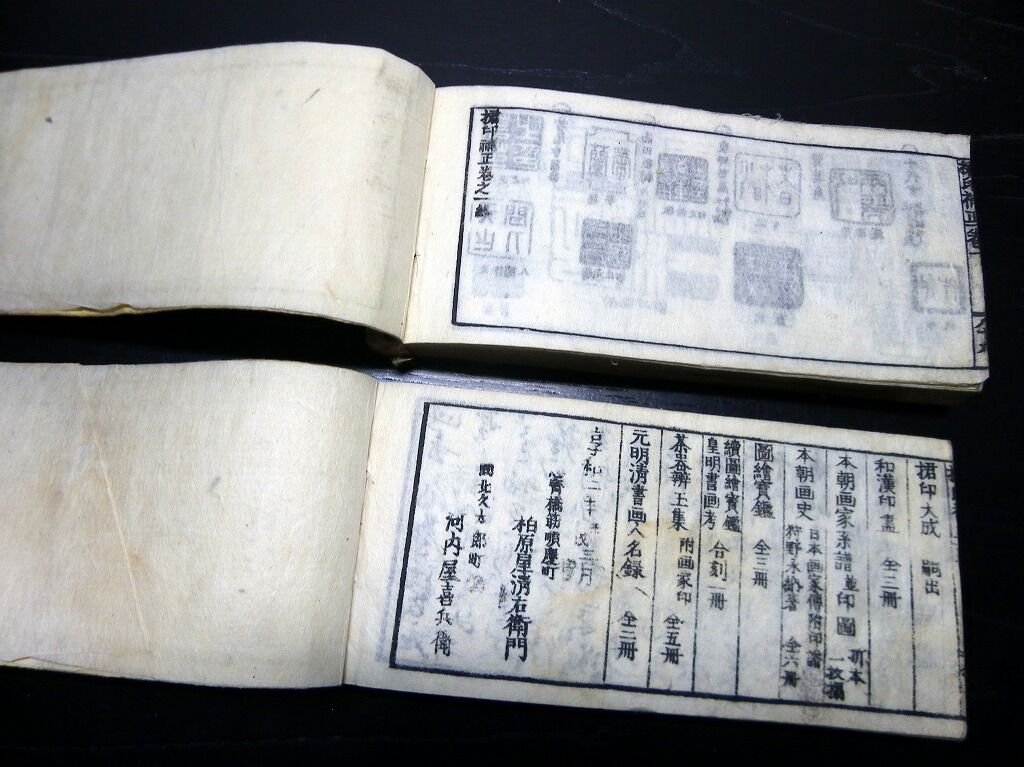 摺印補正巻之一終
嗣出
和漢印盡 全三冊
本朝画家系譜 並印圖
本朝画史 狩野永納著 日本画家傳附印譜 全六冊
圖繪寳鑑 全三冊
續圖繪寳鑑
皇明書画考 合刻二冊
茶器辨玉集 附画家印 全五冊
元明清書画人名録 全二冊
享和二年
三月
心齋橋筋順慶町
柏原屋清右衛門
同北久太郎町
河内屋喜兵衛